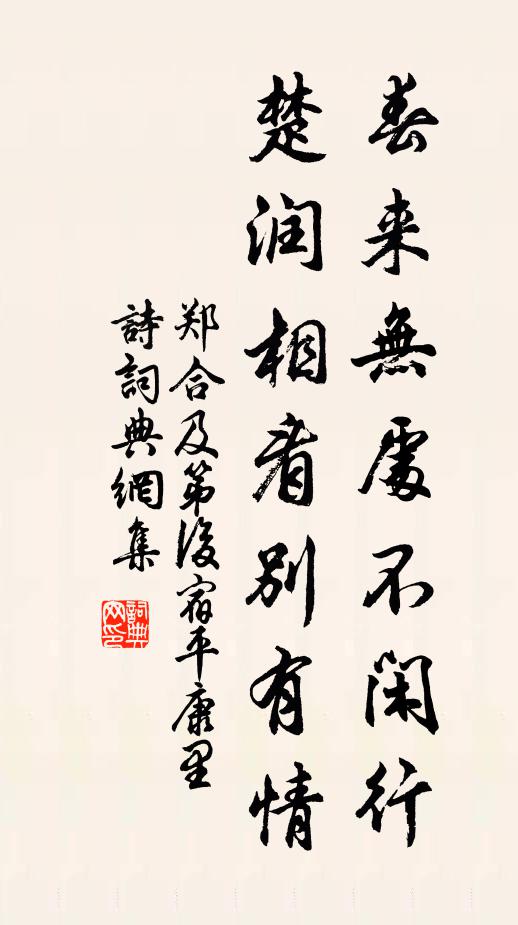 春来無處不闲行
楚润相看别有情
郑合及第後宿平康里
詩詞典網集
詞典网印